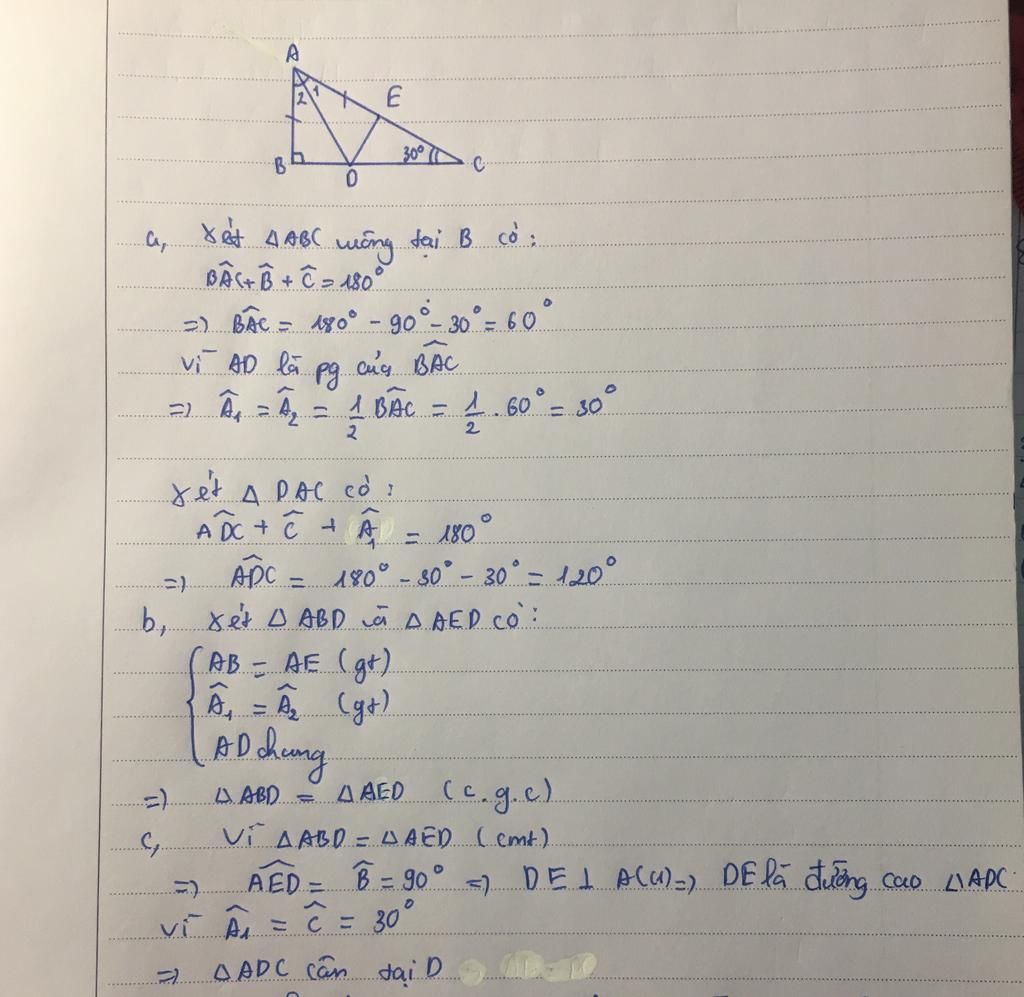 A
2 1
E
B
D
30°
C
a, Xét △ABC vuông tại B có:
BÂC + B̂ + Ĉ = 180°
=> BÂC = 180° - 90° - 30° = 60°
Vì AD là pg của BÂC
=> Â₁ = Â₂ = 1/2 BÂC = 1/2 . 60° = 30°
Xét △DAC có:
AD̂C + Ĉ + Â₁ = 180°
=> AD̂C = 180° - 30° - 30° = 120°
b, Xét △ABD và △AED có:
AB = AE (gt)
Â₁ = Â₂ (gt)
AD chung
=> △ABD = △AED (c.g.c)
c, Vì △ABD = △AED (cmt)
=> AÊD = B̂ = 90° => DE ⊥ AC (1) => DE là đường cao △ADC
Vì Â₁ = Ĉ = 30°
=> △ADC cân tại D